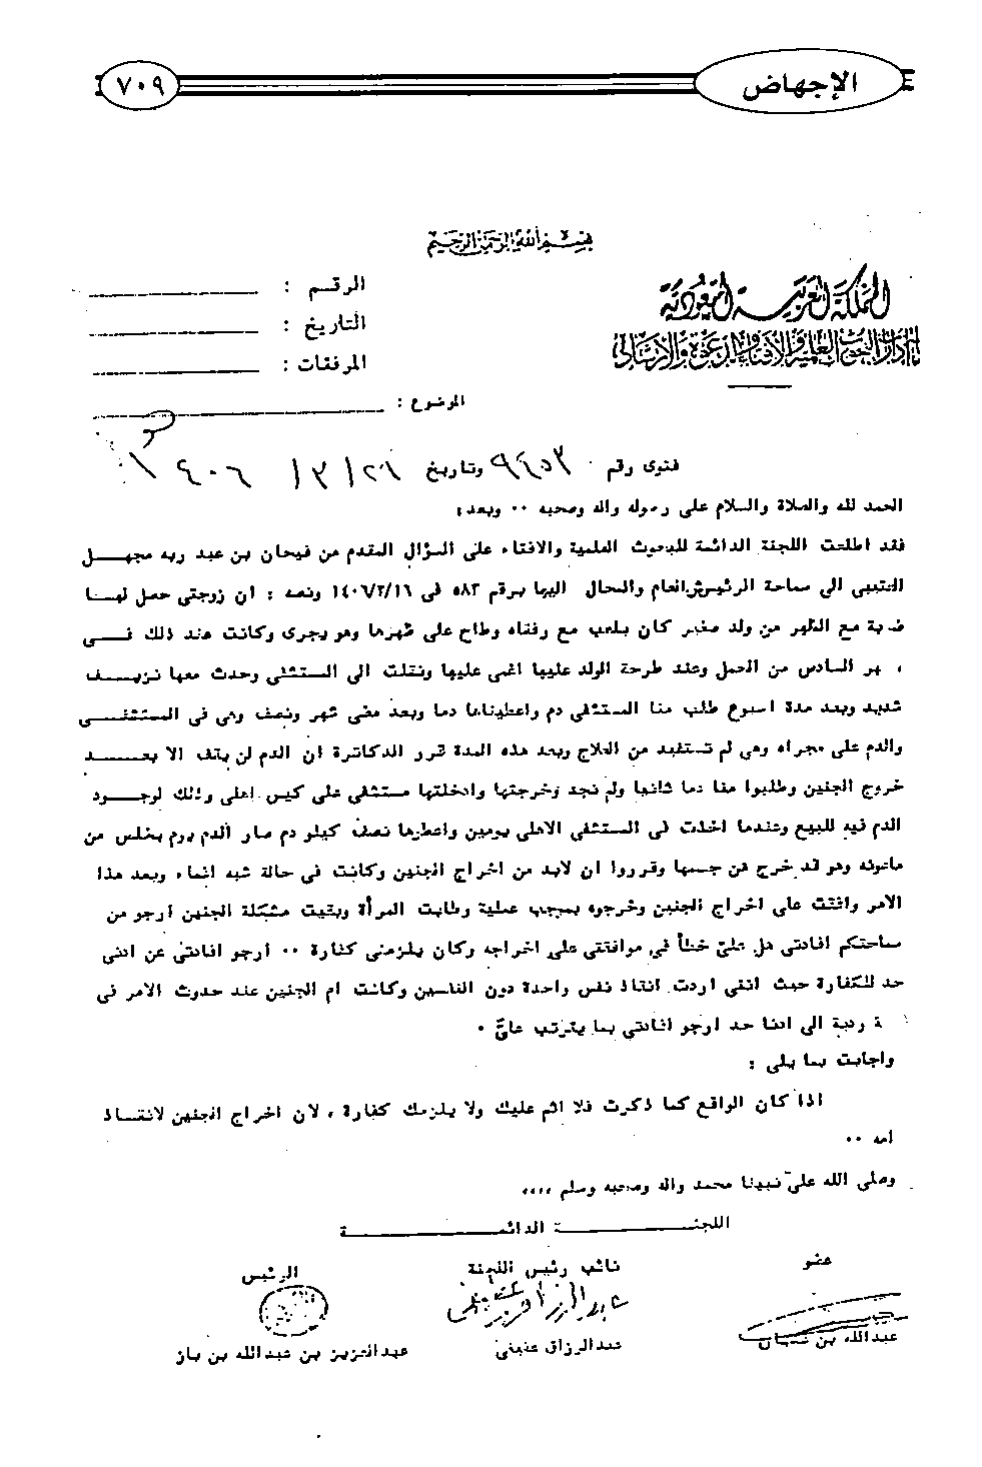 الإجهاض
٧٠٩
بسم الله الرحمن الرحيم
المملكة العربية السعودية
إدارات البحوث العلمية والإفتاء والدعوة والإرشاد
الرقم :
التاريخ :
المرفقات :
الموضوع :
فتوى رقم ٩٤٥٣ وتاريخ ٢٦ / ٣ / ١٤٠٦
الحمد لله والصلاة والسلام على رسوله واله وصحبه ٠٠ وبعد :
فقد اطلعت اللجنة الدائمة للبحوث العلمية والافتاء على السؤال المقدم من فيحان بن عبد ربه مجهل
العتيبي الى سماحة الرئيس العام والمحال اليها برقم ٥٨٣ فى ١٤٠٦/٣/١٦ ونصه : ان زوجتي حصل لهـــا
مع الظهر من ولد صغير كان يلعب مع رفقاه وطاح على ظهرها وهو يجرى وكانت عند ذلك فـــى
السادس من الحمل وعند طرحة الولد عليها اغمى عليها ونقلت الى المستشفى وحدث معها نزيـــف
شديد وبعد مدة اسبوع طلب منا المستشفى دم واعطيناها دما وبعد مضى شهر ونصف وهى فى المستشفـــى
والدم على مجراه وهى لم تستفيد من العلاج وبعد هذه المدة قرر الدكاترة ان الدم لن يقف الا بعـــد
خروج الجنين وطلبوا منا دما ثانيا ولم نجد وخرجتها وادخلتها مستشفى على كيس اهلى وذلك لوجـــود
الدم فيه للبيع وعندما اخذت فى المستشفى الاهلى يومين واعطرها نصف كيلو دم صار الدم يخلص من
وهو قد خرج من جسمها وقرروا ان لابد من اخراج الجنين وكانت فى حالة شبه اغماء وبعد هذا
الامر وافقت على اخراج الجنين وخرجوه بموجب عملية وطابت المرأة وبقيت مشكلة الجنين ارجو من
سماحتكم افادتى هل علىّ خطأ فى موافقتى على اخراجه وكان يلزمنى كفارة ٠٠ ارجو افادتى عن ادنى
حد للكفارة حيث اننى اردت انقاذ نفس واحدة دون النفسين وكانت ام الجنين عند حدوث الامر فى
ردية الى ادنا حد ارجو افادتى بما يترتب علىّ ٠
واجابت بما يلى :
اذا كان الواقع كما ذكرت فلا اثم عليك ولا يلزمك كفارة ، لان اخراج الجنين لانقـــاذ
امه ٠٠
وصلى الله على نبينا محمد واله وصحبه وسلم ،،،،
اللجنـــة الدائمـــة
عضو
نائب رئيس اللجنة
الرئيس
عبدالرزاق عفيفى
عبدالله بن غديان
عبدالرزاق عفيفى
عبدالعزيز بن عبدالله بن باز